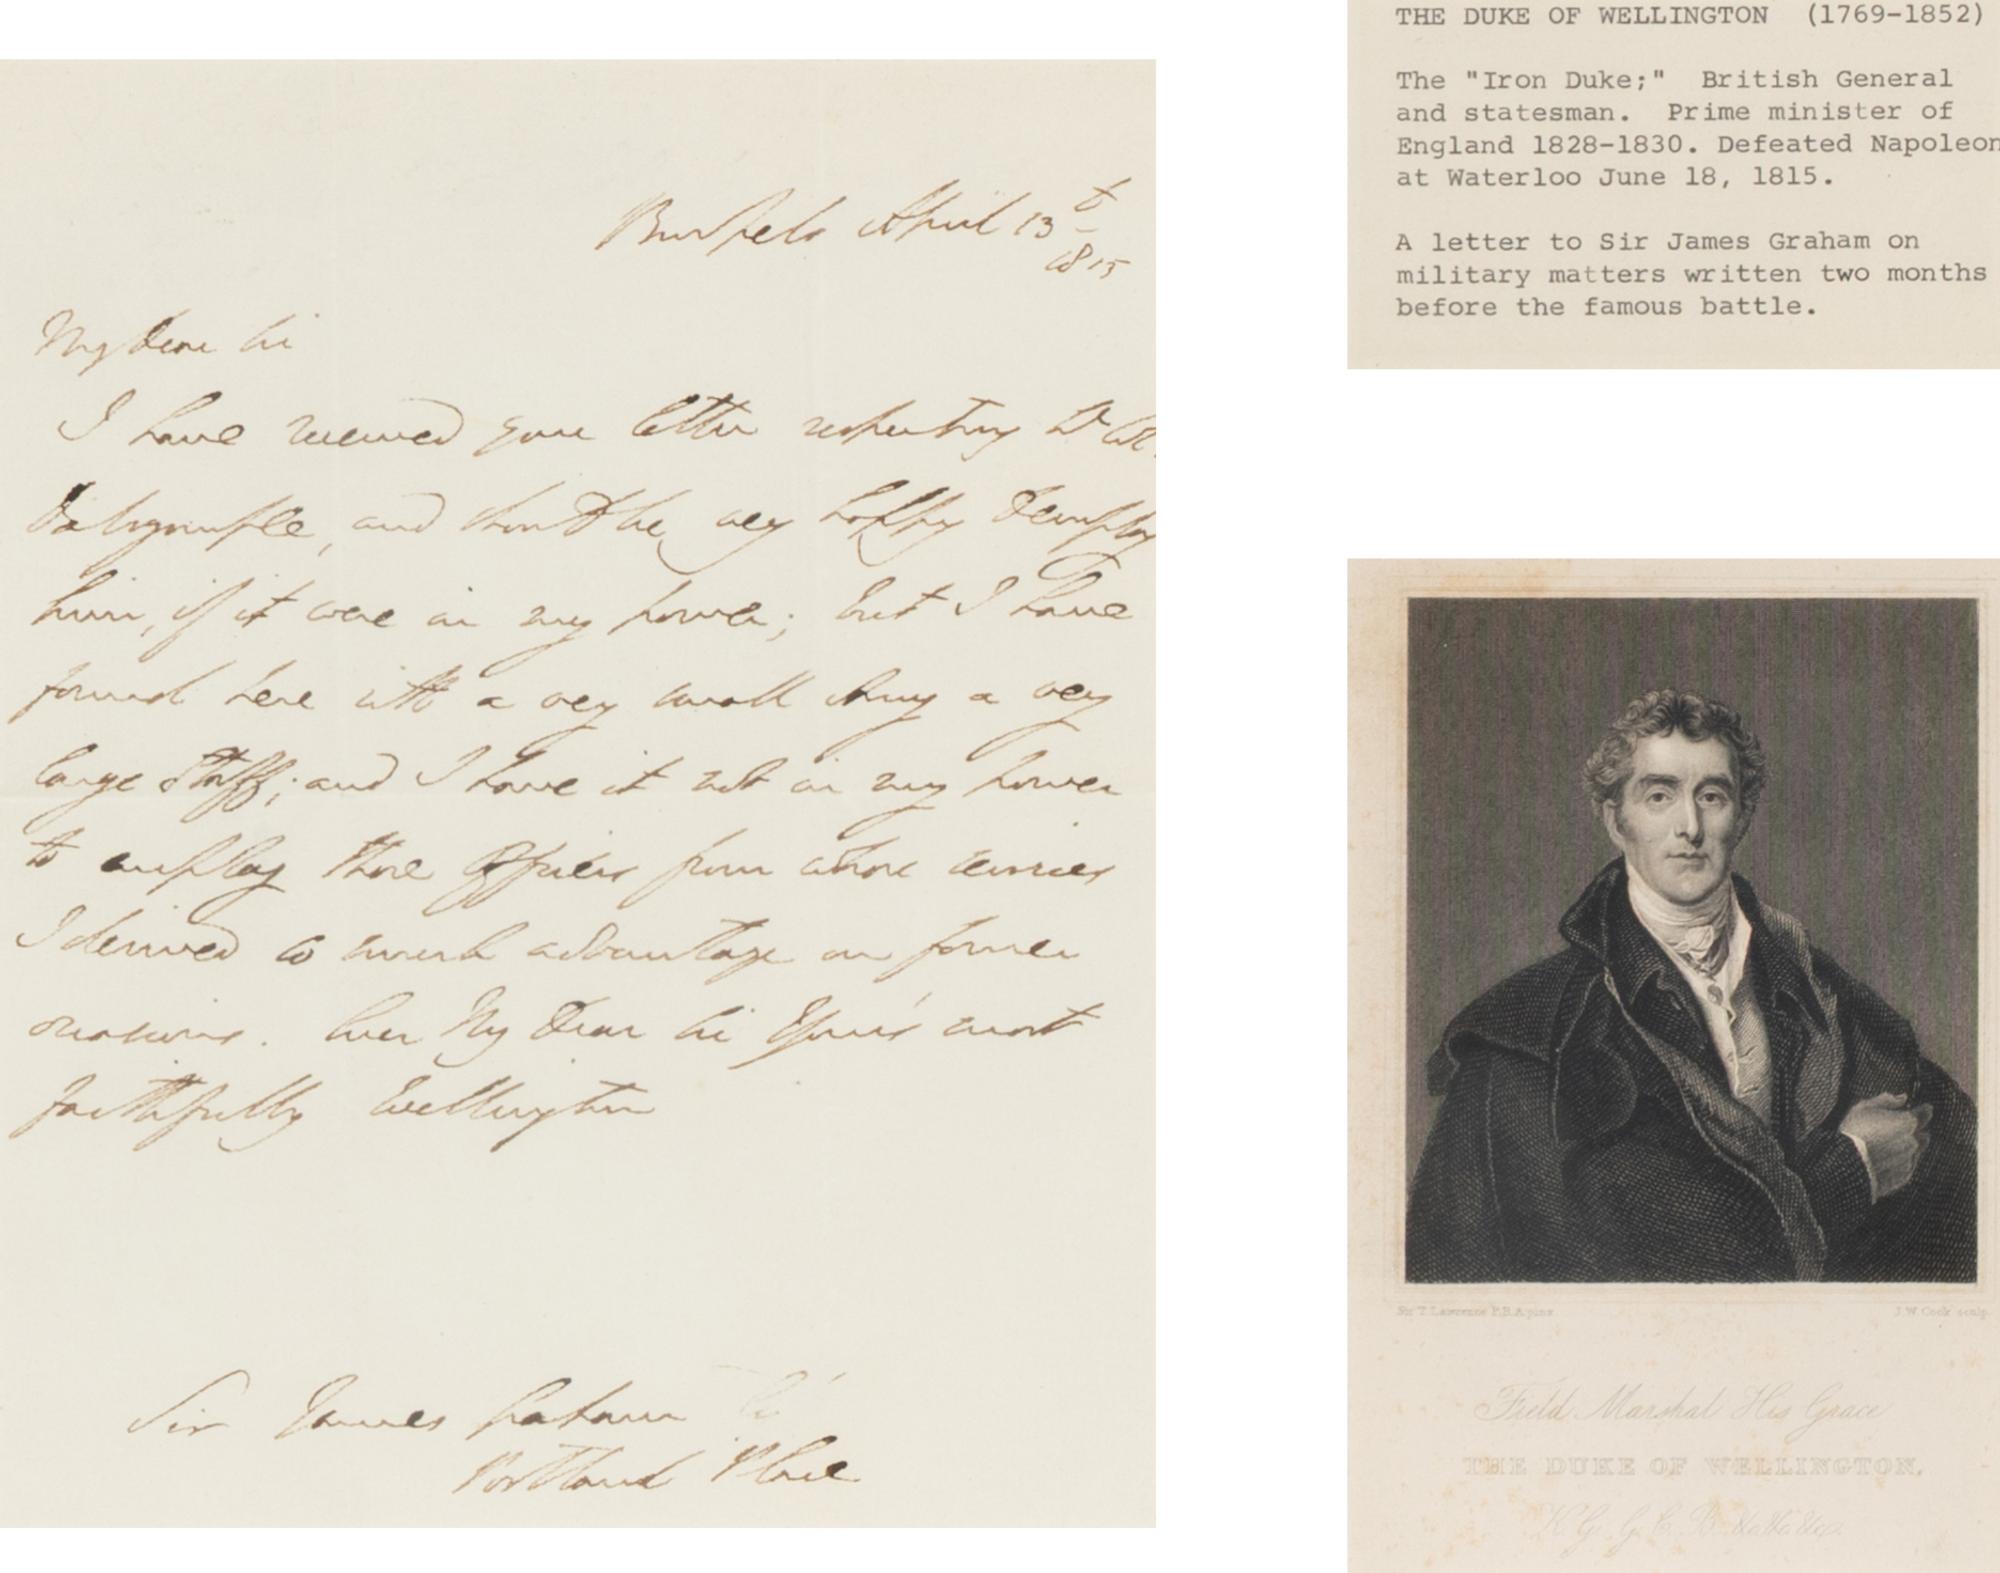 Bruxelles April 13th
1815
My dear Sir
I have received your letter respecting Lt Col.
Dalrymple, and should be very happy to employ
him, if it were in my power; but I have
found here with a very small Army a very
large Staff; and I have it not in my power
to employ those Officers from whose services
I derived so much advantage on former
occasions. Ever My Dear Sir Your's most
faithfully Wellington
Sir James Graham
Portland Place
THE DUKE OF WELLINGTON (1769-1852)
The "Iron Duke;" British General
and statesman. Prime minister of
England 1828-1830. Defeated Napoleon
at Waterloo June 18, 1815.
A letter to Sir James Graham on
military matters written two months
before the famous battle.
Sir T. Lawrence P.R.A. pinx.
J.W. Cook sculp.
Field Marshal His Grace
THE DUKE OF WELLINGTON,
K.G. G.C.B. &c. &c. &c.